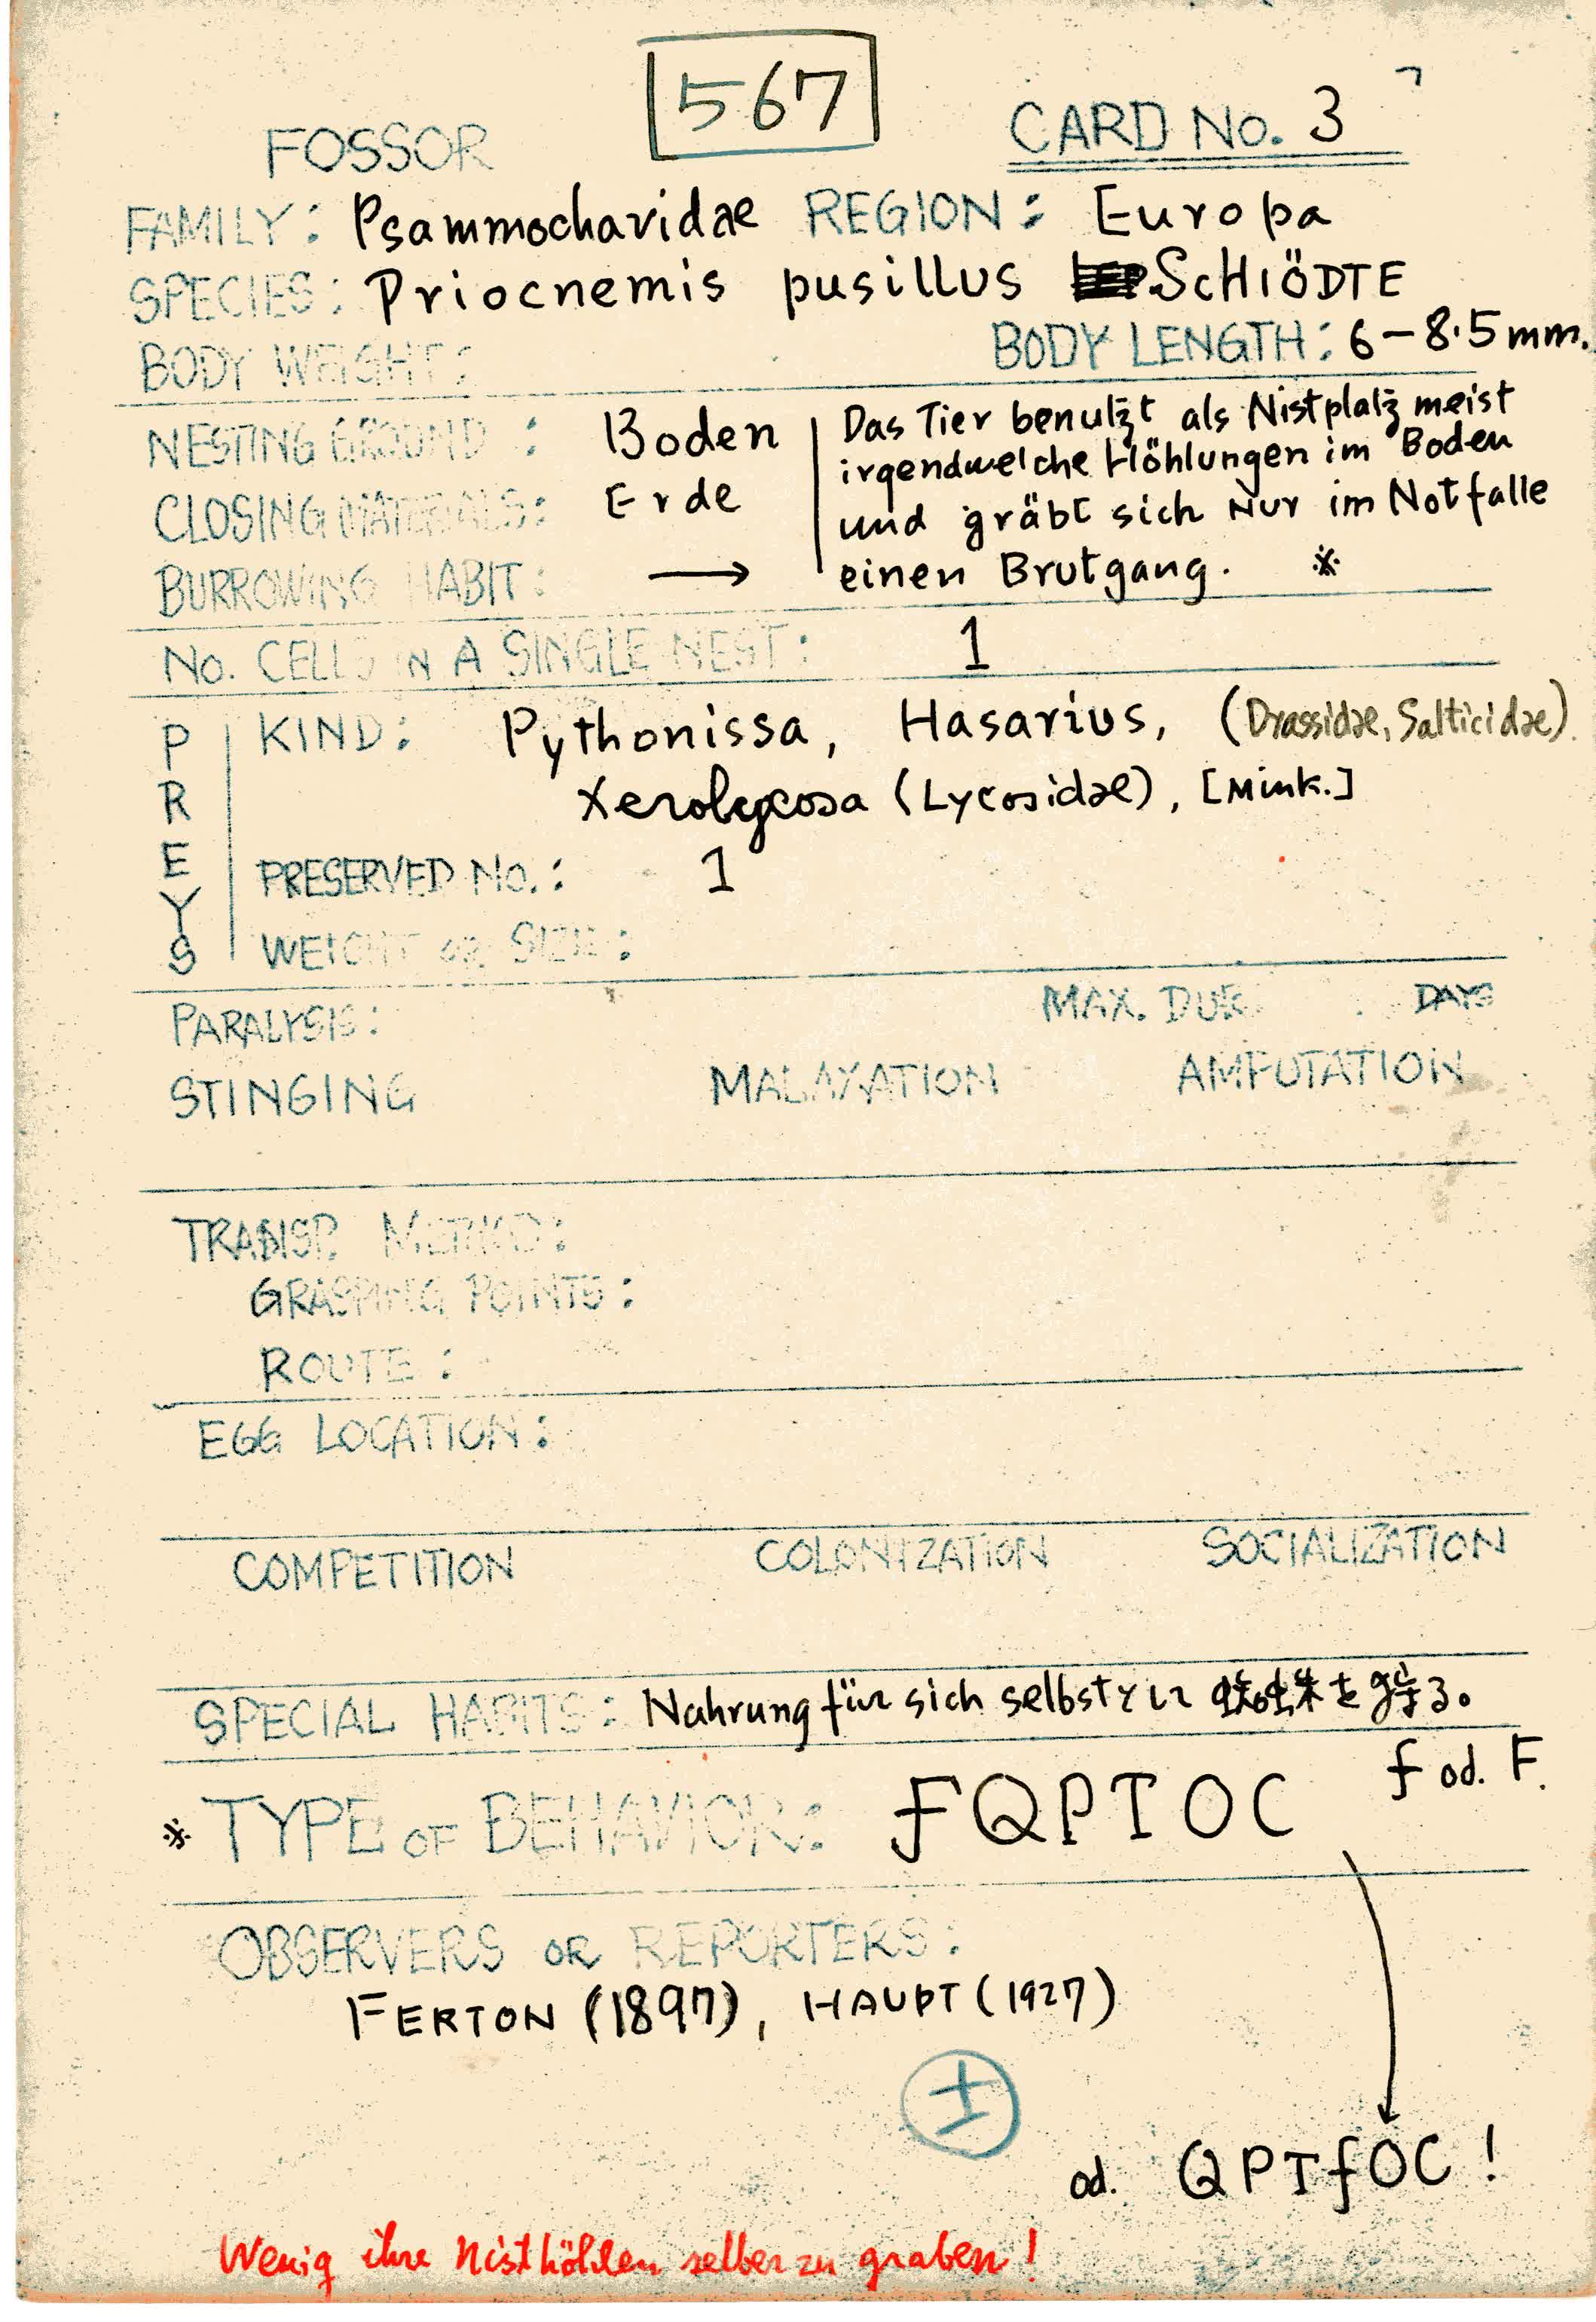 567
FOSSOR CARD No. 3
FAMILY: Psammocharidae REGION: Europa
SPECIES: Priocnemis pusillus SCHIÖDTE
BODY WEIGHT: BODY LENGTH: 6-8.5mm.
NESTING GROUND: Boden
CLOSING MATERIALS: Erde
BURROWING HABIT: →
Das Tier benutzt als Nistplatz meist
irgendwelche Höhlungen im Boden
und gräbt sich nur im Notfalle
einen Brutgang. ※
No. CELLS IN A SINGLE NEST: 1
PREYS
KIND: Pythonissa, Hasarius, (Drassidae, Salticidae).
Xerolycosa (Lycosidae), [Mink.]
PRESERVED No.: 1
WEIGHT OR SIZE:
PARALYSIS: MAX. DUR. DAYS
STINGING MALAXATION AMPUTATION
TRANSP. METHOD:
GRASPING POINTS:
ROUTE:
EGG LOCATION:
COMPETITION COLONIZATION SOCIALIZATION
SPECIAL HABITS: Nahrung für sich selbstトシテ蜘蛛を狩る。
※ TYPE OF BEHAVIOR: fQPTOC f od. F.
OBSERVERS OR REPORTERS:
FERTON (1897), HAUPT (1927)
±
od. QPTfOC!
Wenig ihre Nisthöhlen selber zu graben!